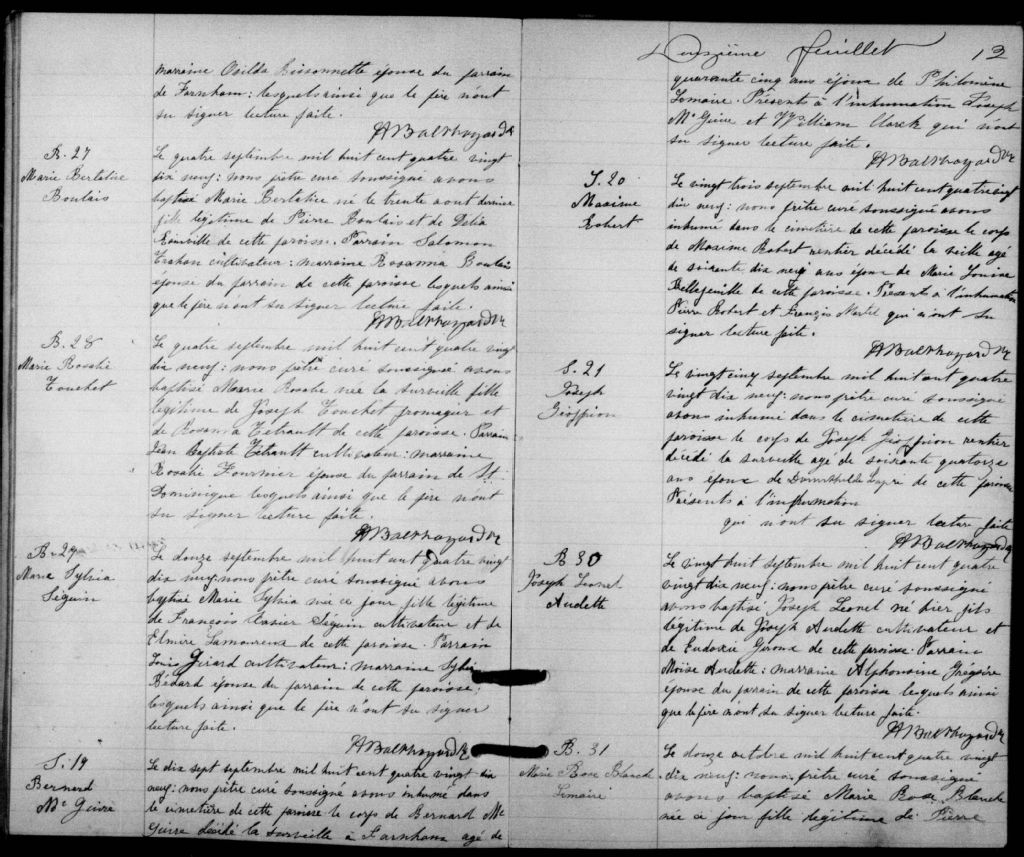 marraine Exilda Bissonnette épouse du parrain
de Farnham: lesquels ainsi que le père n'ont
su signer lecture faite.
Balthazard Ptre
B. 27
Marie Berlatie
Boulais
Le quatre septembre mil huit cent quatre vingt
dix neuf: nous prêtre curé soussigné avons
baptisé Marie Berlatie né le trente aout dernier
fille légitime de Pierre Boulais et de Délia
de cette paroisse. Parrain Salomon
Trahan cultivateur: marraine Rosanna Boulais
épouse du parrain de cette paroisse lesquels ainsi
que le père n'ont su signer lecture faite.
Balthazard Ptre
B. 28
Marie Rosalie
Touchet
Le quatre septembre mil huit cent quatre vingt
dix neuf: nous prêtre curé soussigné avons
baptisé Marie Rosalie née la surveille fille
légitime de Joseph Touchet fromager et
de Rosanna Tétrault de cette paroisse. Parrain
Jean Baptiste Tétrault cultivateur: marraine
Rosalie Fournier épouse du parrain de St.
Dominique lesquels ainsi que le père n'ont
su signer lecture faite.
Balthazard Ptre
B. 29
Marie Sylvia
Séguin
Le douze septembre mil huit cent quatre vingt
dix neuf: nous prêtre curé soussigné avons
baptisé Marie Sylvia née ce jour fille légitime
de François Séguin cultivateur et de
Elmire Lamoureux de cette paroisse. Parrain
Louis Girard cultivateur: marraine Sylvia
Bédard épouse du parrain de cette paroisse;
lesquels ainsi que le père n'ont su signer
lecture faite.
Balthazard Ptre
S. 19
Bernard
Mc Guire
Le dix sept septembre mil huit cent quatre vingt dix
neuf: nous prêtre curé soussigné avons inhumé dans
le cimetière de cette paroisse le corps de Bernard Mc
Guire décédé la surveille à Farnham agé de
Douzième feuillet 12
quarante cinq ans époux de Philomène
Lemaire. Présents à l'inhumation Joseph
Mc Guire et William Clark qui n'ont
su signer lecture faite.
Balthazard Ptre
S. 20
Maxime
Robert
Le vingt trois septembre mil huit cent quatre vingt
dix neuf: nous prêtre curé soussigné avons
inhumé dans le cimetière de cette paroisse le corps
de Maxime Robert rentier décédé la veille agé
de soixante dix neuf ans époux de Marie Louise
Bellefeuille de cette paroisse. Présents à l'inhumation
Pierre Robert et François Martel qui n'ont su
signer lecture faite.
Balthazard Ptre
S. 21
Joseph
Le vingt cinq septembre mil huit cent quatre
vingt dix neuf: nous prêtre curé soussigné
avons inhumé dans le cimetière de cette
paroisse le corps de Joseph rentier
décédé la surveille agé de soixante quatorze
ans époux de de cette paroisse
Présents à l'inhumation
qui n'ont su signer lecture faite
Balthazard Ptre
B 30
Joseph Leonel
Audette
Le vingt huit septembre mil huit cent quatre
vingt dix neuf: nous prêtre curé soussigné
avons baptisé Joseph Leonel né hier fils
légitime de Joseph Audette cultivateur et
de Eudoxie Giroux de cette paroisse. Parrain
Moïse Audette: marraine Alphonsine Grégoire
épouse du parrain de cette paroisse lesquels ainsi
que le père n'ont su signer lecture faite.
Balthazard Ptre
B. 31
Marie Rose Blanch
Lemaire
Le douze octobre mil huit cent quatre vingt
dix neuf: nous prêtre curé soussigné
avons baptisé Marie Rose Blanche
née ce jour fille légitime de Pierre